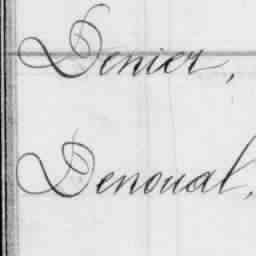 Denier,
Denoual,